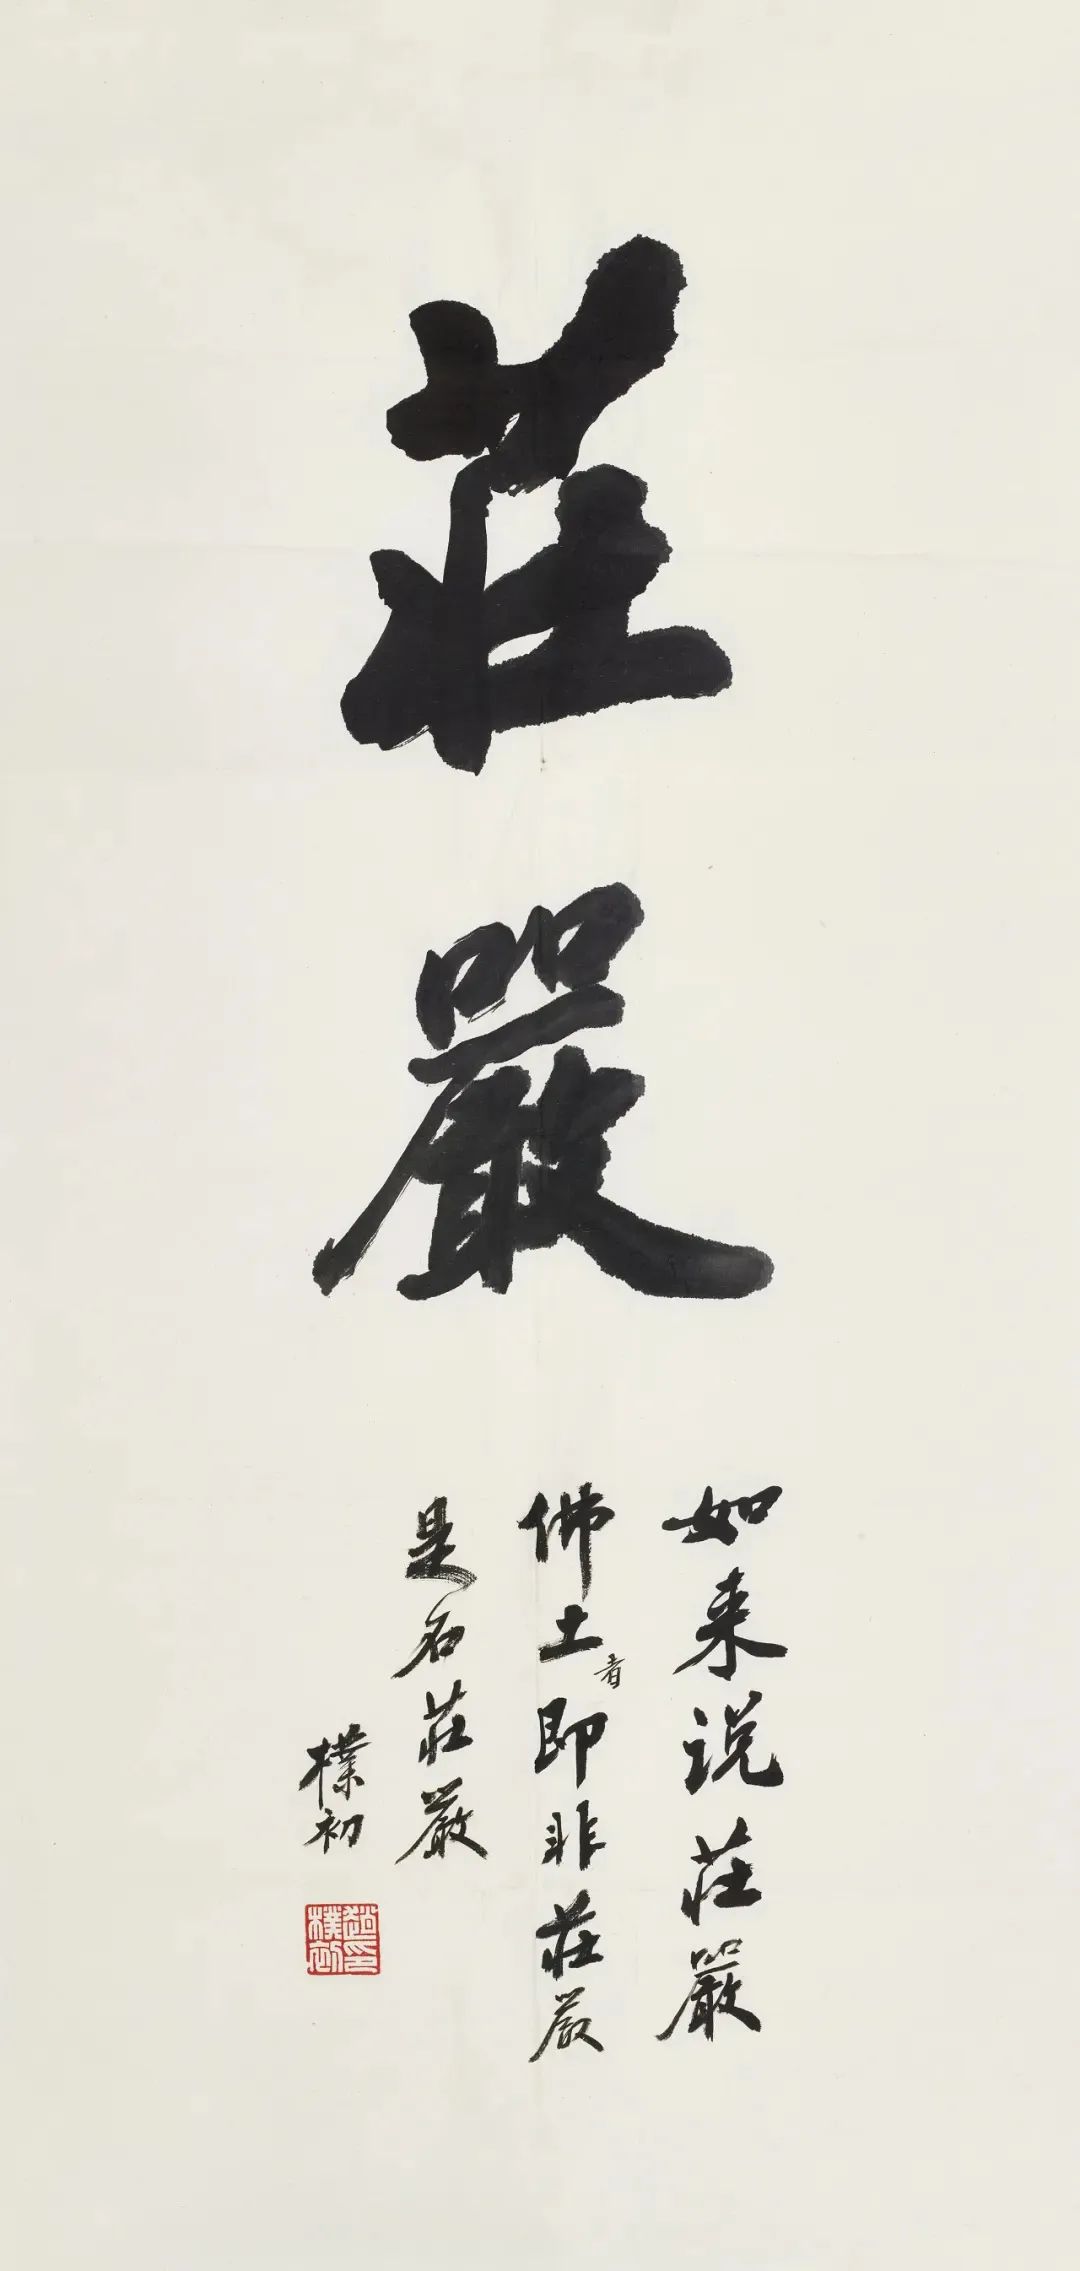 莊嚴
如来说莊嚴
佛土者即非莊嚴
是名莊嚴
樸初
趙樸初印